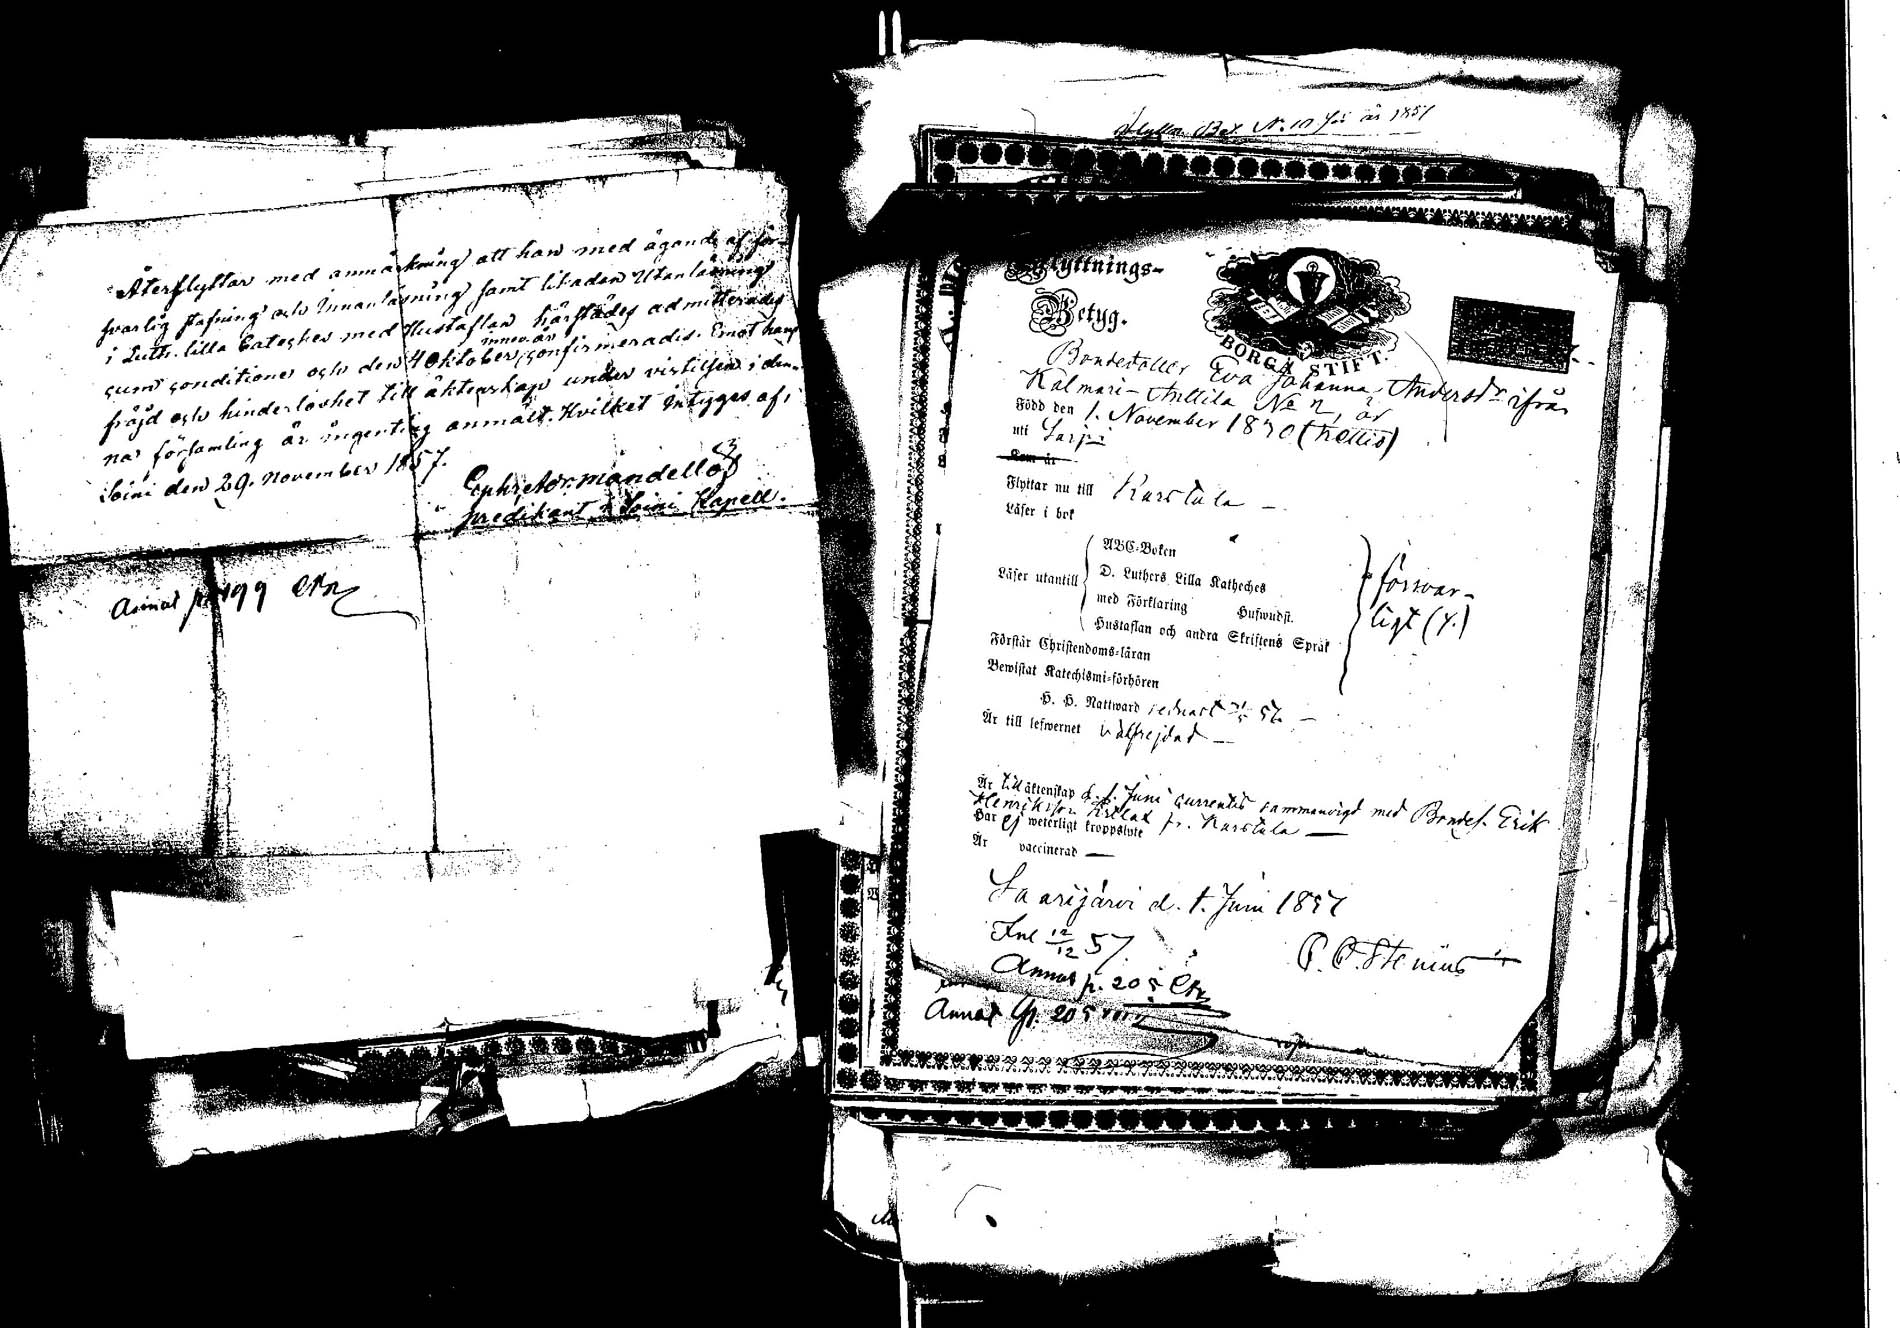 Återflyttar med anmärkning att han med ägande af för-
svarlig stafning och Innanläsning samt likadan Utanläsning
i Luth. lilla Cateches med Hustaflan härstädes admitterades
innev. år
cum conditione och den 4 Oktober confirmerades. Emot hans
fräjd och hinderlöshet till äktenskap under vistelsen i den-
na församling är ingenting anmält. Hvilket intygas af,
Soini den 29. November 1857.
predikant i Soini Kapell.
Annot p. 199
Flyttn. Bet. N. 10 för år 1857
Flyttnings-
Betyg.
BORGÅ STIFT.
Bondedotter Eva Johanna Andersdr ifrån
Kalmari-Anttila No 2, är
Född den 1. November 1830
uti
Som är
Flyttar nu till Karstula —
Läser i bok
Läser utantill
ABC-Boken
D. Luthers Lilla Katheches
med Förklaring Hufwudst.
Hustaflan och andra Skriftens Språk
försvar-
ligt
Förstår Christendoms-läran
Bewistat Katechismi-förhören
H. H. Nattward sednast 57 —
Är till lefwernet välfrejdad —
Är till äktenskap d. 1. Juni currentis sammanvigd med Bondes. Erik
Henriksson fr. Karstula —
Har ej weterligt kroppslyte
Är vaccinerad —
Saarijärvi d. 1. Juni 1857
Inl 12/12 57.
C. C. Stenius
Annot p. 205
Annot p. 205